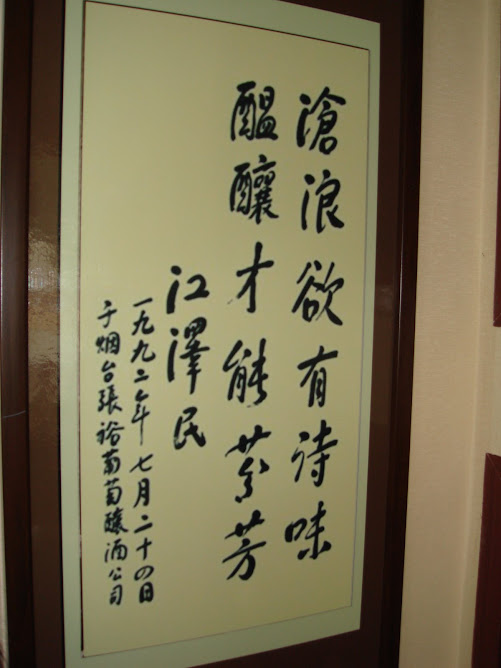 滄浪欲有诗味
醖釀才能芬芳
江澤民
一九九二年七月二十四日
于烟台張裕葡萄釀酒公司